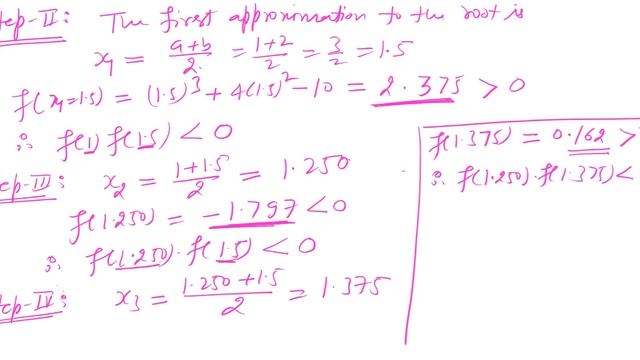 tep-II: The first approximation to the root is
x₁ = (a+b)/2 = (1+2)/2 = 3/2 = 1.5
f(x₁=1.5) = (1.5)³ + 4(1.5)² - 10 = 2.375 > 0
∴ f(1) f(1.5) < 0
ep-III: x₂ = (1+1.5)/2 = 1.250
f(1.250) = -1.797 < 0
∴ f(1.250) · f(1.5) < 0
tep-IV: x₃ = (1.250+1.5)/2 = 1.375
f(1.375) = 0.162 >
∴ f(1.250) · f(1.375) <